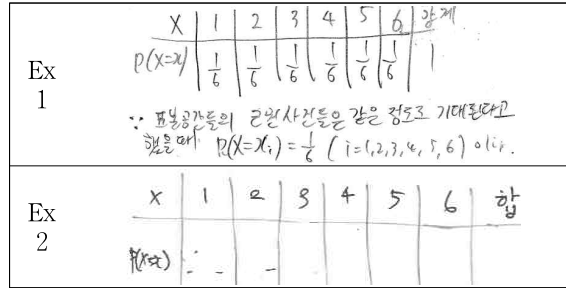 Ex 1
X 1 2 3 4 5 6 합계
P(X=x) 1/6 1/6 1/6 1/6 1/6 1/6 1
∵ 표본공간들의 근원사건들은 같은 정도로 기대된다고
했을때 P(X=xᵢ) = 1/6 ( i=1,2,3,4,5,6) 이다.
Ex 2
X 1 2 3 4 5 6 합
P(X=x)